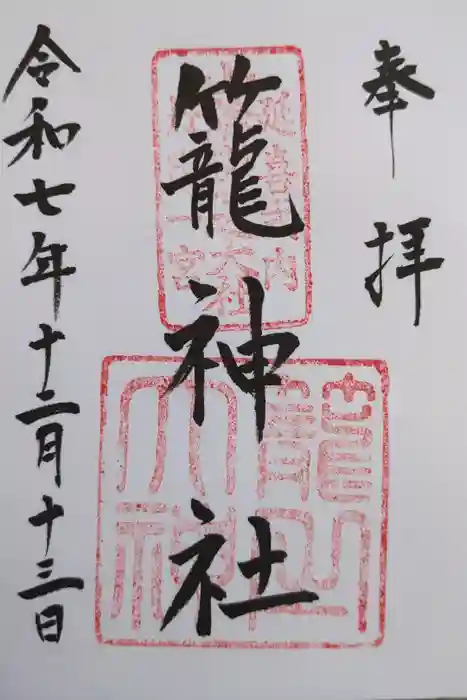 奉拝
延喜式内
大社
一宮
籠神社
籠之大神
令和七年十二月十三日